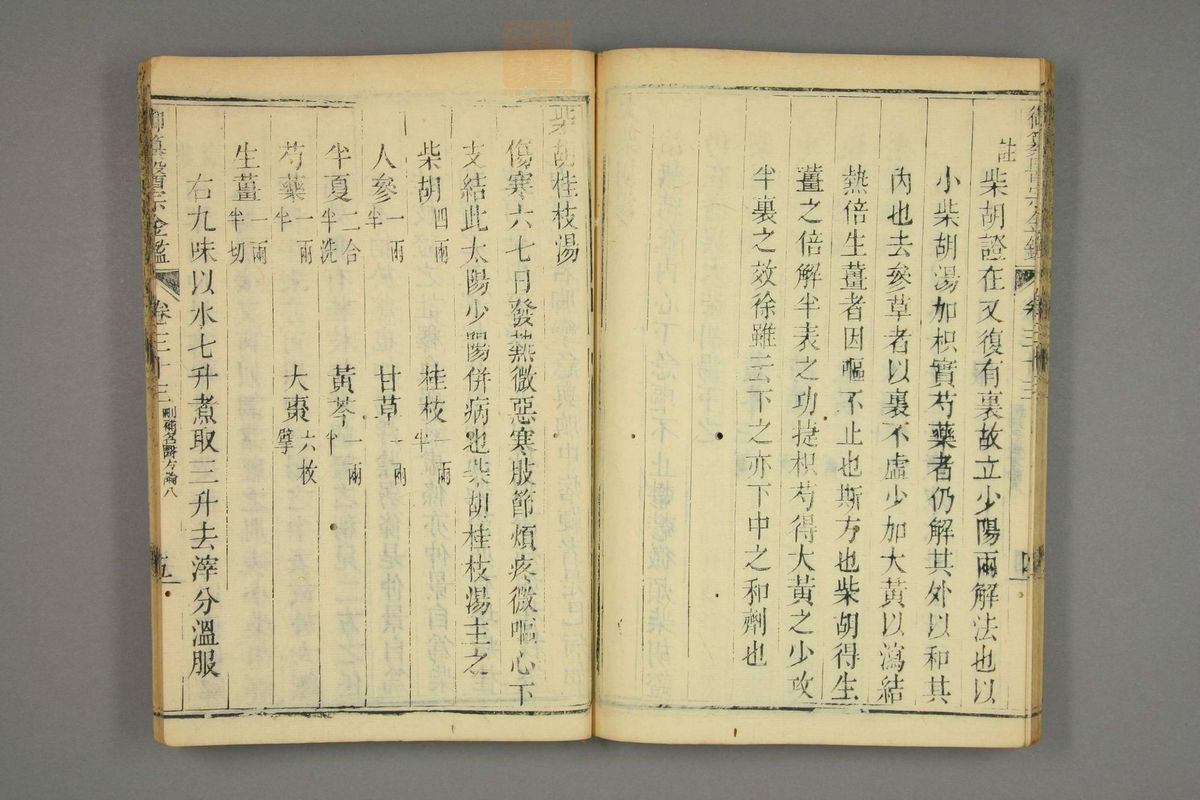 御纂醫宗金鑑 卷三十三
註
柴胡證在又復有裏故立少陽兩解法也以
小柴胡湯加枳實芍藥者仍解其外以和其
內也去參草者以裏不虛少加大黃以瀉結
熱倍生薑者因嘔不止也斯方也柴胡得生
薑之倍解半表之功捷枳芍得大黃之少攻
半裏之效徐雖云下之亦下中之和劑也
柴胡桂枝湯
傷寒六七日發熱微惡寒肢節煩疼微嘔心下
支結此太陽少陽併病也柴胡桂枝湯主之
柴胡四兩 桂枝一兩半
人參一兩半 甘草一兩
半夏二合半洗 黃芩一兩半
芍藥一兩半 大棗六枚擘
生薑一兩半切
右九味以水七升煮取三升去滓分溫服
御纂醫宗金鑑 卷三十三 刪補名醫方論八 五